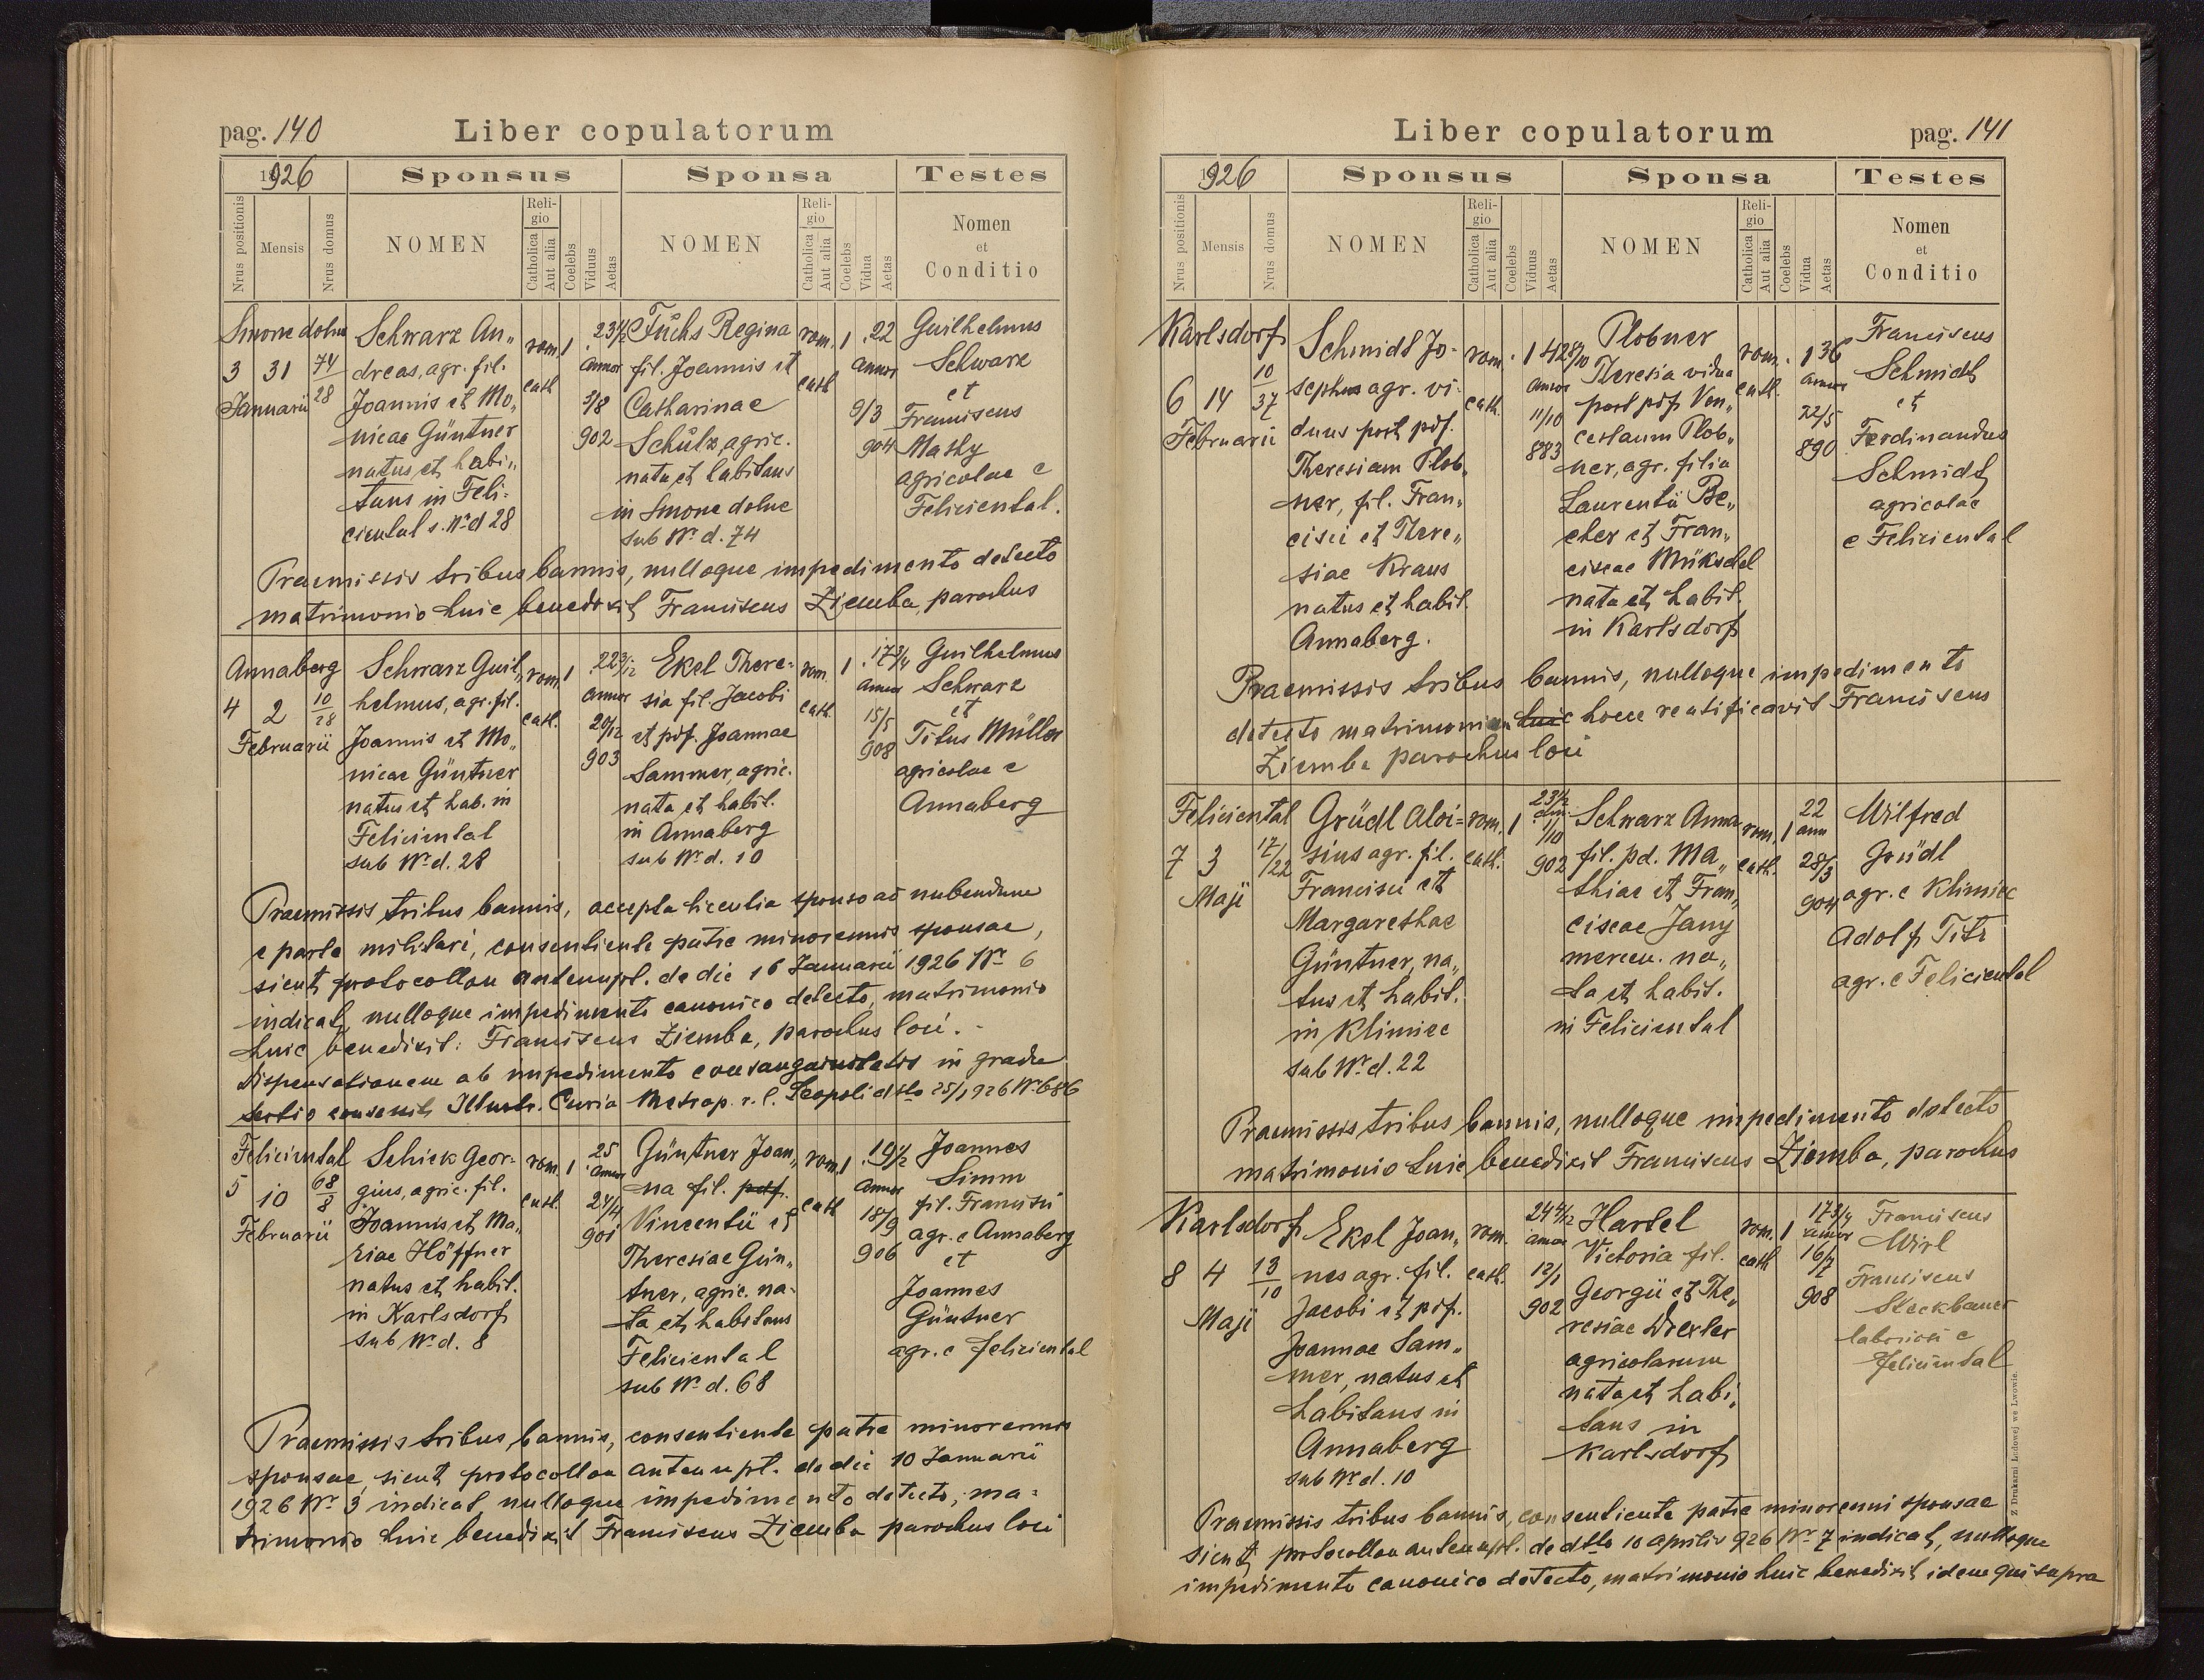 pag. 140
Liber copulatorum
1926
Sponsus
Sponsa
Testes
Nrus positionis
Mensis
Nrus domus
NOMEN
Religio
Catholica
Aut alia
Coelebs
Viduus
Aetas
NOMEN
Religio
Catholica
Aut alia
Coelebs
Vidua
Aetas
Nomen
et
Conditio
Smorze dolne
3 31 74/28
Januarii
Schwarz An„
dreas, agr. fil.
Joannis et Mo„
nicae Güntner
natus et habi„
tans in Feli-
ciental s. Nr d 28
rom. 1
cath
23 1/2
annor
5/8
902
Fuchs Regina
fil. Joannis et
Catharinae
Schülz, agric.
nata et habitans
in Smorze dolne
sub Nr. d. 74
rom. 1
cath
22
annor
9/3
904
Guilhelmus
Schwarz
et
Franciscus
Masny
agricolae e
Feliciental.
Praemissis tribus bannis, nulloque impedimento detecto
matrimonio huic benedixit Franciscus Ziemba, parochus
Annaberg
4 2 10/28
Februarii
Schwarz Guil„
helmus, agr. fil.
Joannis et Mo„
nicae Güntner
natus et hab. in
Feliciental
sub Nr. d. 28
rom. 1
cath.
22 3/12
annor
20/12
903
Ekel There-
sia fil. Jacobi
et pdf. Joannae
Sammer, agric.
nata et habit.
in Annaberg
sub Nr. d. 10
rom. 1
cath.
17 3/4
annor
15/5
908
Guilhelmus
Schwarz
et
Titus Müller
agricolae e
Annaberg
Praemissis tribus bannis, accepta licentia sponso ad nubendum
e parte militari, consentiente patre minorennis sponsae,
sicut protocollon antenupt. de die 16 Januarii 1926 Nr 6
indicat, nulloque impedimento canonico detecto, matrimonio
huic benedixit: Franciscus Ziemba, parochus loci. -
Dispensationem ab impedimento consanguinitatis in gradu
tertio concessit Illustr. Curia Metrop. r. l. Leopoli ddto 25/1 926 Nr 686
Feliciental
5 10 68/8
Februarii
Schick Geor-
gius, agric. fil.
Joannis et Ma„
riae Höffner
natus et habit.
in Karlsdorf
sub Nr. d. 8
rom. 1
cath.
25
annor
24/4
901
Güntner Joan„
na fil. pdf.
Vincentii et
Theresiae Gün„
tner, agric. na-
ta et habitans
Feliciental
sub Nr. d. 68
rom. 1
cath
19 1/2
annor
18/9
906
Joannes
Simm
fil. Francisci
agr. e Annaberg
et
Joannes
Güntner
agr. e Feliciental
Praemissis tribus bannis, consentiente patre minorennis
sponsae, sicut protocollon antenupt. de die 10 Januarii
1926 Nr 3 indicat, nulloque impedimento detecto, ma-
trimonio huic benedixit Franciscus Ziemba parochus loci
Liber copulatorum
pag. 141
1926
Sponsus
Sponsa
Testes
Nrus positionis
Mensis
Nrus domus
NOMEN
Religio
Catholica
Aut alia
Coelebs
Viduus
Aetas
NOMEN
Religio
Catholica
Aut alia
Coelebs
Vidua
Aetas
Nomen
et
Conditio
Karlsdorf
6 14 10/37
Februarii
Schmidt Jo-
sephus agr. vi-
duus post pdf.
Theresiam Plob„
ner, fil. Fran„
cisci et There„
siae Kraus
natus et habit.
Annaberg.
rom. 1
cath.
annor
11/10
883
Plobner
Theresia vidua
post pdf Ven„
ceslaum Plob„
ner, agr. filia
Laurentii Be„
cher et Fran„
ciscae Mükschel
nata et habit.
in Karlsdorf
rom. 1
cath.
36
annor
22/5
890
Franciscus
Schmidt
et
Ferdinandus
Schmidt
agricolae
e Feliciental
Praemissis tribus bannis, nulloque impedimento
detecto matrimonium huic hocce ratificavit Franciscus
Ziemba parochus loci
Feliciental
7 3 17/22
Maji
Grüdl Aloi-
sius agr. fil.
Francisci et
Margarethae
Güntner, na„
tus et habit.
in Klimiec
sub Nr. d. 22
rom. 1
cath.
23 1/2
ann.
1/10
902
Schwarz Anna
fil. pd. Ma„
thiae et Fran„
ciscae Jany
mercen. na„
ta et habit.
in Feliciental
rom. 1
cath.
22
ann
28/3
904
Wilfred
Grüdl
agr. e Klimiec
Adolf Titz
agr. e Feliciental
Praemissis tribus bannis, nulloque impedimento detecto
matrimonio huic benedixit Franciscus Ziemba, parochus
Karlsdorf
8 4 13/10
Maji
Ekel Joan„
nes agr. fil.
Jacobi et pdf.
Joannae Sam„
mer, natus et
habitans in
Annaberg
sub Nr. d. 10
rom.
cath.
24 4/12
annor
12/1
902
Hartel
Victoria fil.
Georgii et The„
resiae Drexler
agricolarum
nata et habi„
tans in
Karlsdorf
rom. 1
cath
17 3/4
annor
16/7
908
Franciscus
Wirl
Franciscus
Steckbauer
laboriosi e
Feliciental
Praemissis tribus bannis, consentiente patre minorenni sponsae
sicut protocollon antenupt. de ddto 10 Aprilis 926 Nr. 7 indicat, nulloque
impedimento canonico detecto, matrimonio huic benedixit idem qui supra
Z Drukarni Ludowej we Lwowie.